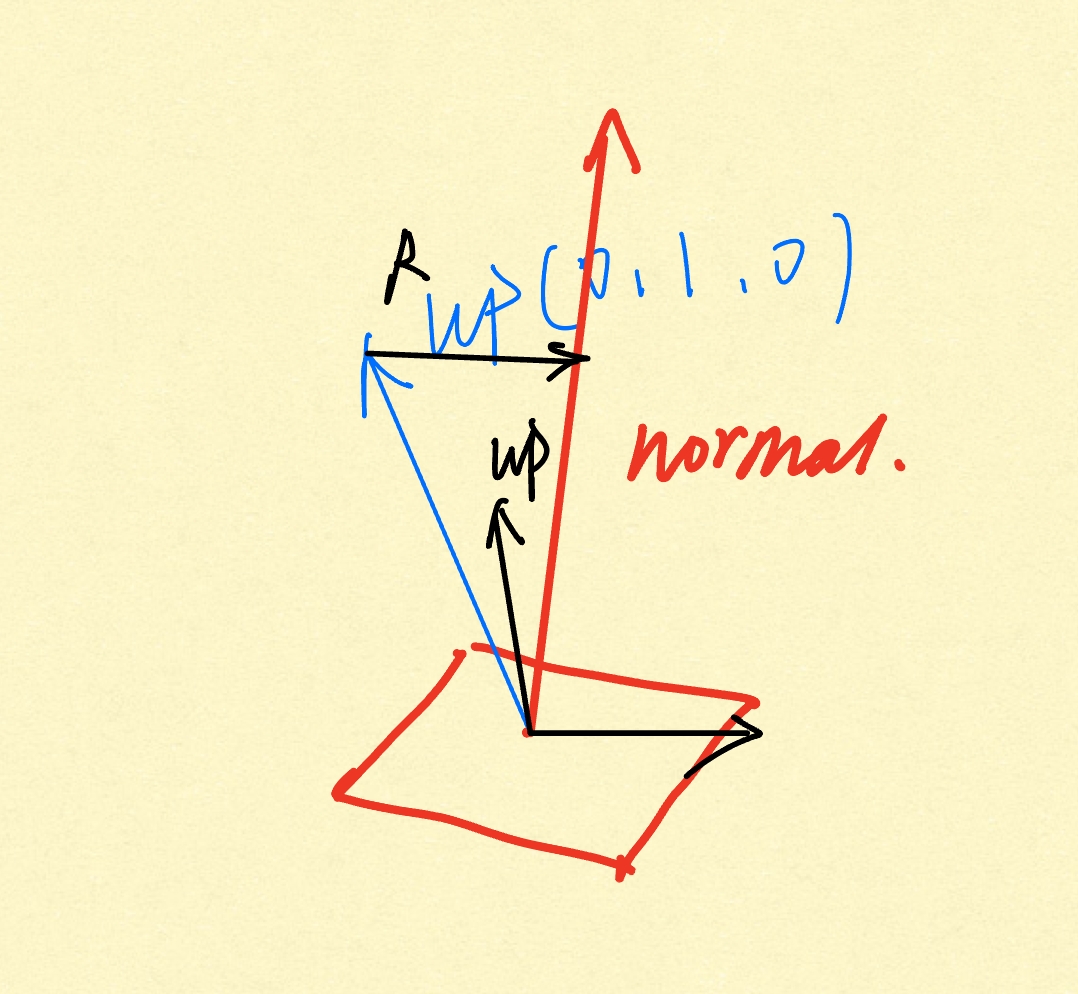 R
up (0, 1, 0)
up
normal.